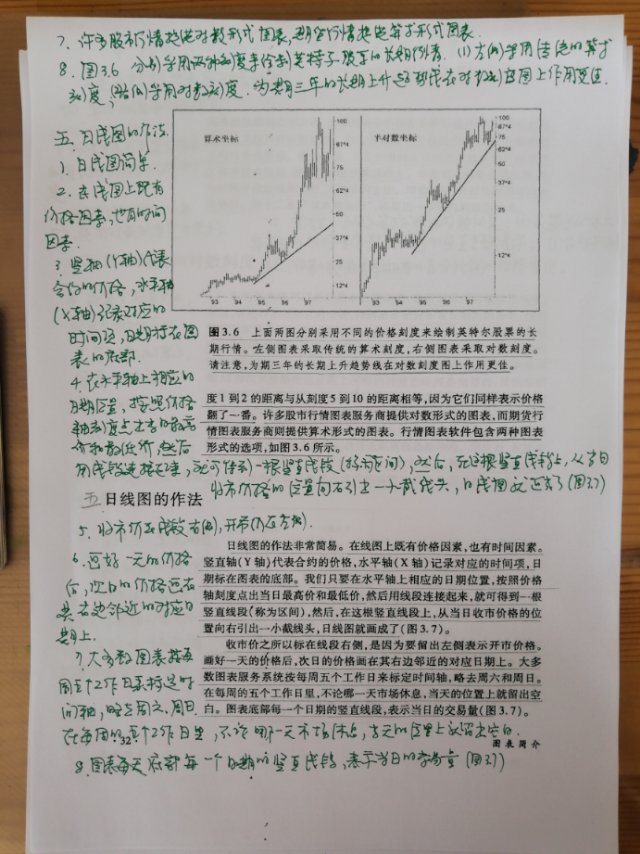 7. 许多股市行情提供对数形式图表,期货行情提供算术形式图表.
8. 图3.6 分别采用两种刻度来绘制英特尔股票的长期行情. (1)方(例)采用传统的算术
刻度, 采用对数刻度. 为期三年的长期上升趋势线在对数刻度图上作用更佳.
五、日线图的作法
1. 日线图简单.
2. 在线图上既有
价格因素,也有时间
因素.
3. 竖轴(Y轴)代表
合约的价格,水平轴
(X轴)记录对应的
时间项,日期标在图
表的底部.
4. 在水平轴上相应的
日期位置,按照价格
轴刻度点出当日最高
价和最低价,然后
用线段连接起来,就可得到一根竖直线段(称为区间),然后,在这根竖直线段上,从当日
收市价格的位置向右引出一小截线头,日线图就画成了(图3.7)
算术坐标
100
87*4
75
62*4
50
37*4
25
12*4
93 94 95 96 97
半对数坐标
100
87*4
75
62*4
50
37*4
25
12*4
93 94 95 96 97
图3.6 上面两图分别采用不同的价格刻度来绘制英特尔股票的长
期行情。左侧图表采取传统的算术刻度,右侧图表采取对数刻度。
请注意,为期三年的长期上升趋势线在对数刻度图上作用更佳。
度1到2的距离与从刻度5到10的距离相等,因为它们同样表示价格
翻了一番。许多股市行情图表服务商提供对数形式的图表,而期货行
情图表服务商则提供算术形式的图表。行情图表软件包含两种图表
形式的选项,如图3.6所示。
五 日线图的作法
5. 收市价在线段右侧,开市价在左侧.
6. 画好一天的价格
后,次日的价格画在
其右边邻近的对应日
期上.
7) 大多数图表按每
周五个工作日来标定时
间轴,略去周六、周日.
在每周的五个工作日里,不论哪一天市场休息,当天的位置上就留出空白.
8. 图表每天底部每一个日期的竖直线段,表示当日的交易量(图3.7)
日线图的作法非常简易。在线图上既有价格因素,也有时间因素。
竖直轴(Y轴)代表合约的价格,水平轴(X轴)记录对应的时间项,日
期标在图表的底部。我们只要在水平轴上相应的日期位置,按照价格
轴刻度点出当日最高价和最低价,然后用线段连接起来,就可得到一根
竖直线段(称为区间),然后,在这根竖直线段上,从当日收市价格的位
置向右引出一小截线头,日线图就画成了(图3.7)。
收市价之所以标在线段右侧,是因为要留出左侧表示开市价格。
画好一天的价格后,次日的价格画在其右边邻近的对应日期上。大多
数图表服务系统按每周五个工作日来标定时间轴,略去周六和周日。
在每周的五个工作日里,不论哪一天市场休息,当天的位置上就留出空
白。图表底部每一个日期的竖直线段,表示当日的交易量(图3.7)。
32
图表简介